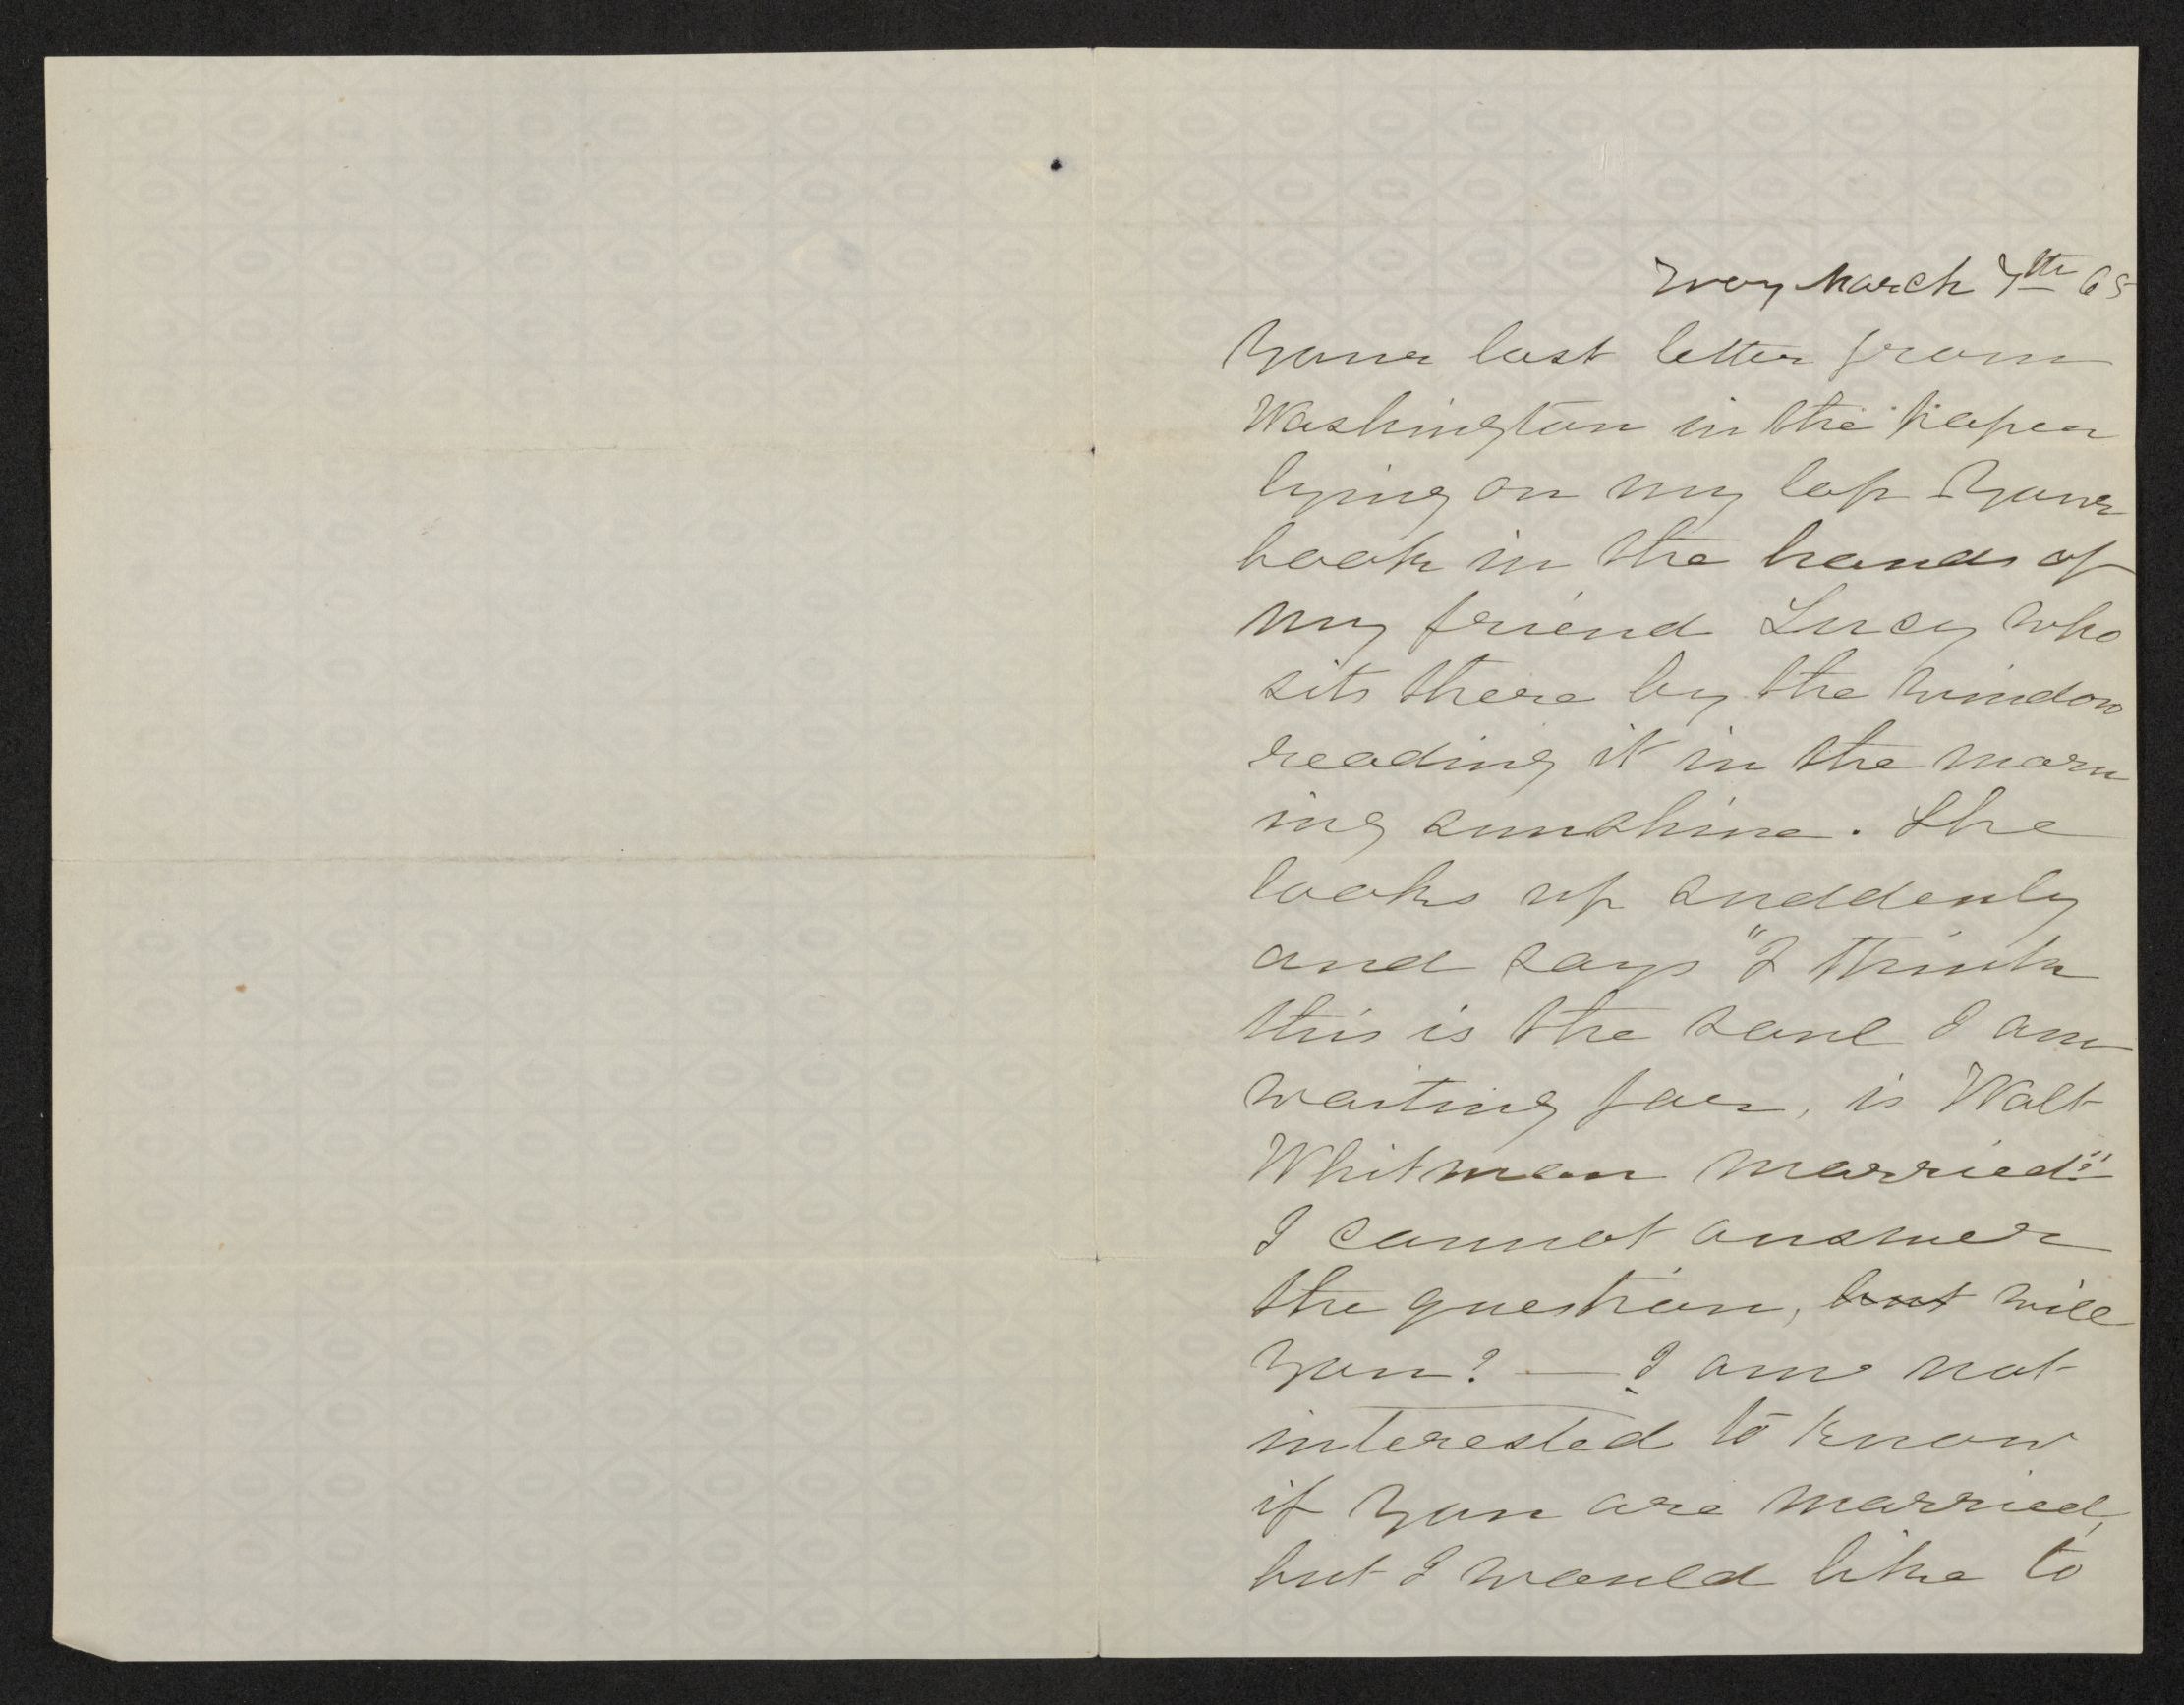 Troy March 7th 65
Your last letter from
Washington in the paper
lying on my lap – Your
book in the hands of
my friend Lucy who
sits there by the window
reading it in the morn
ing sunshine. She
looks up suddenly
and says "I think
this is the soul I am
waiting for, is Walt
Whitman married?"
I cannot answer
the question, but will
you? — I am not
interested to know
if you are married,
but I would like to